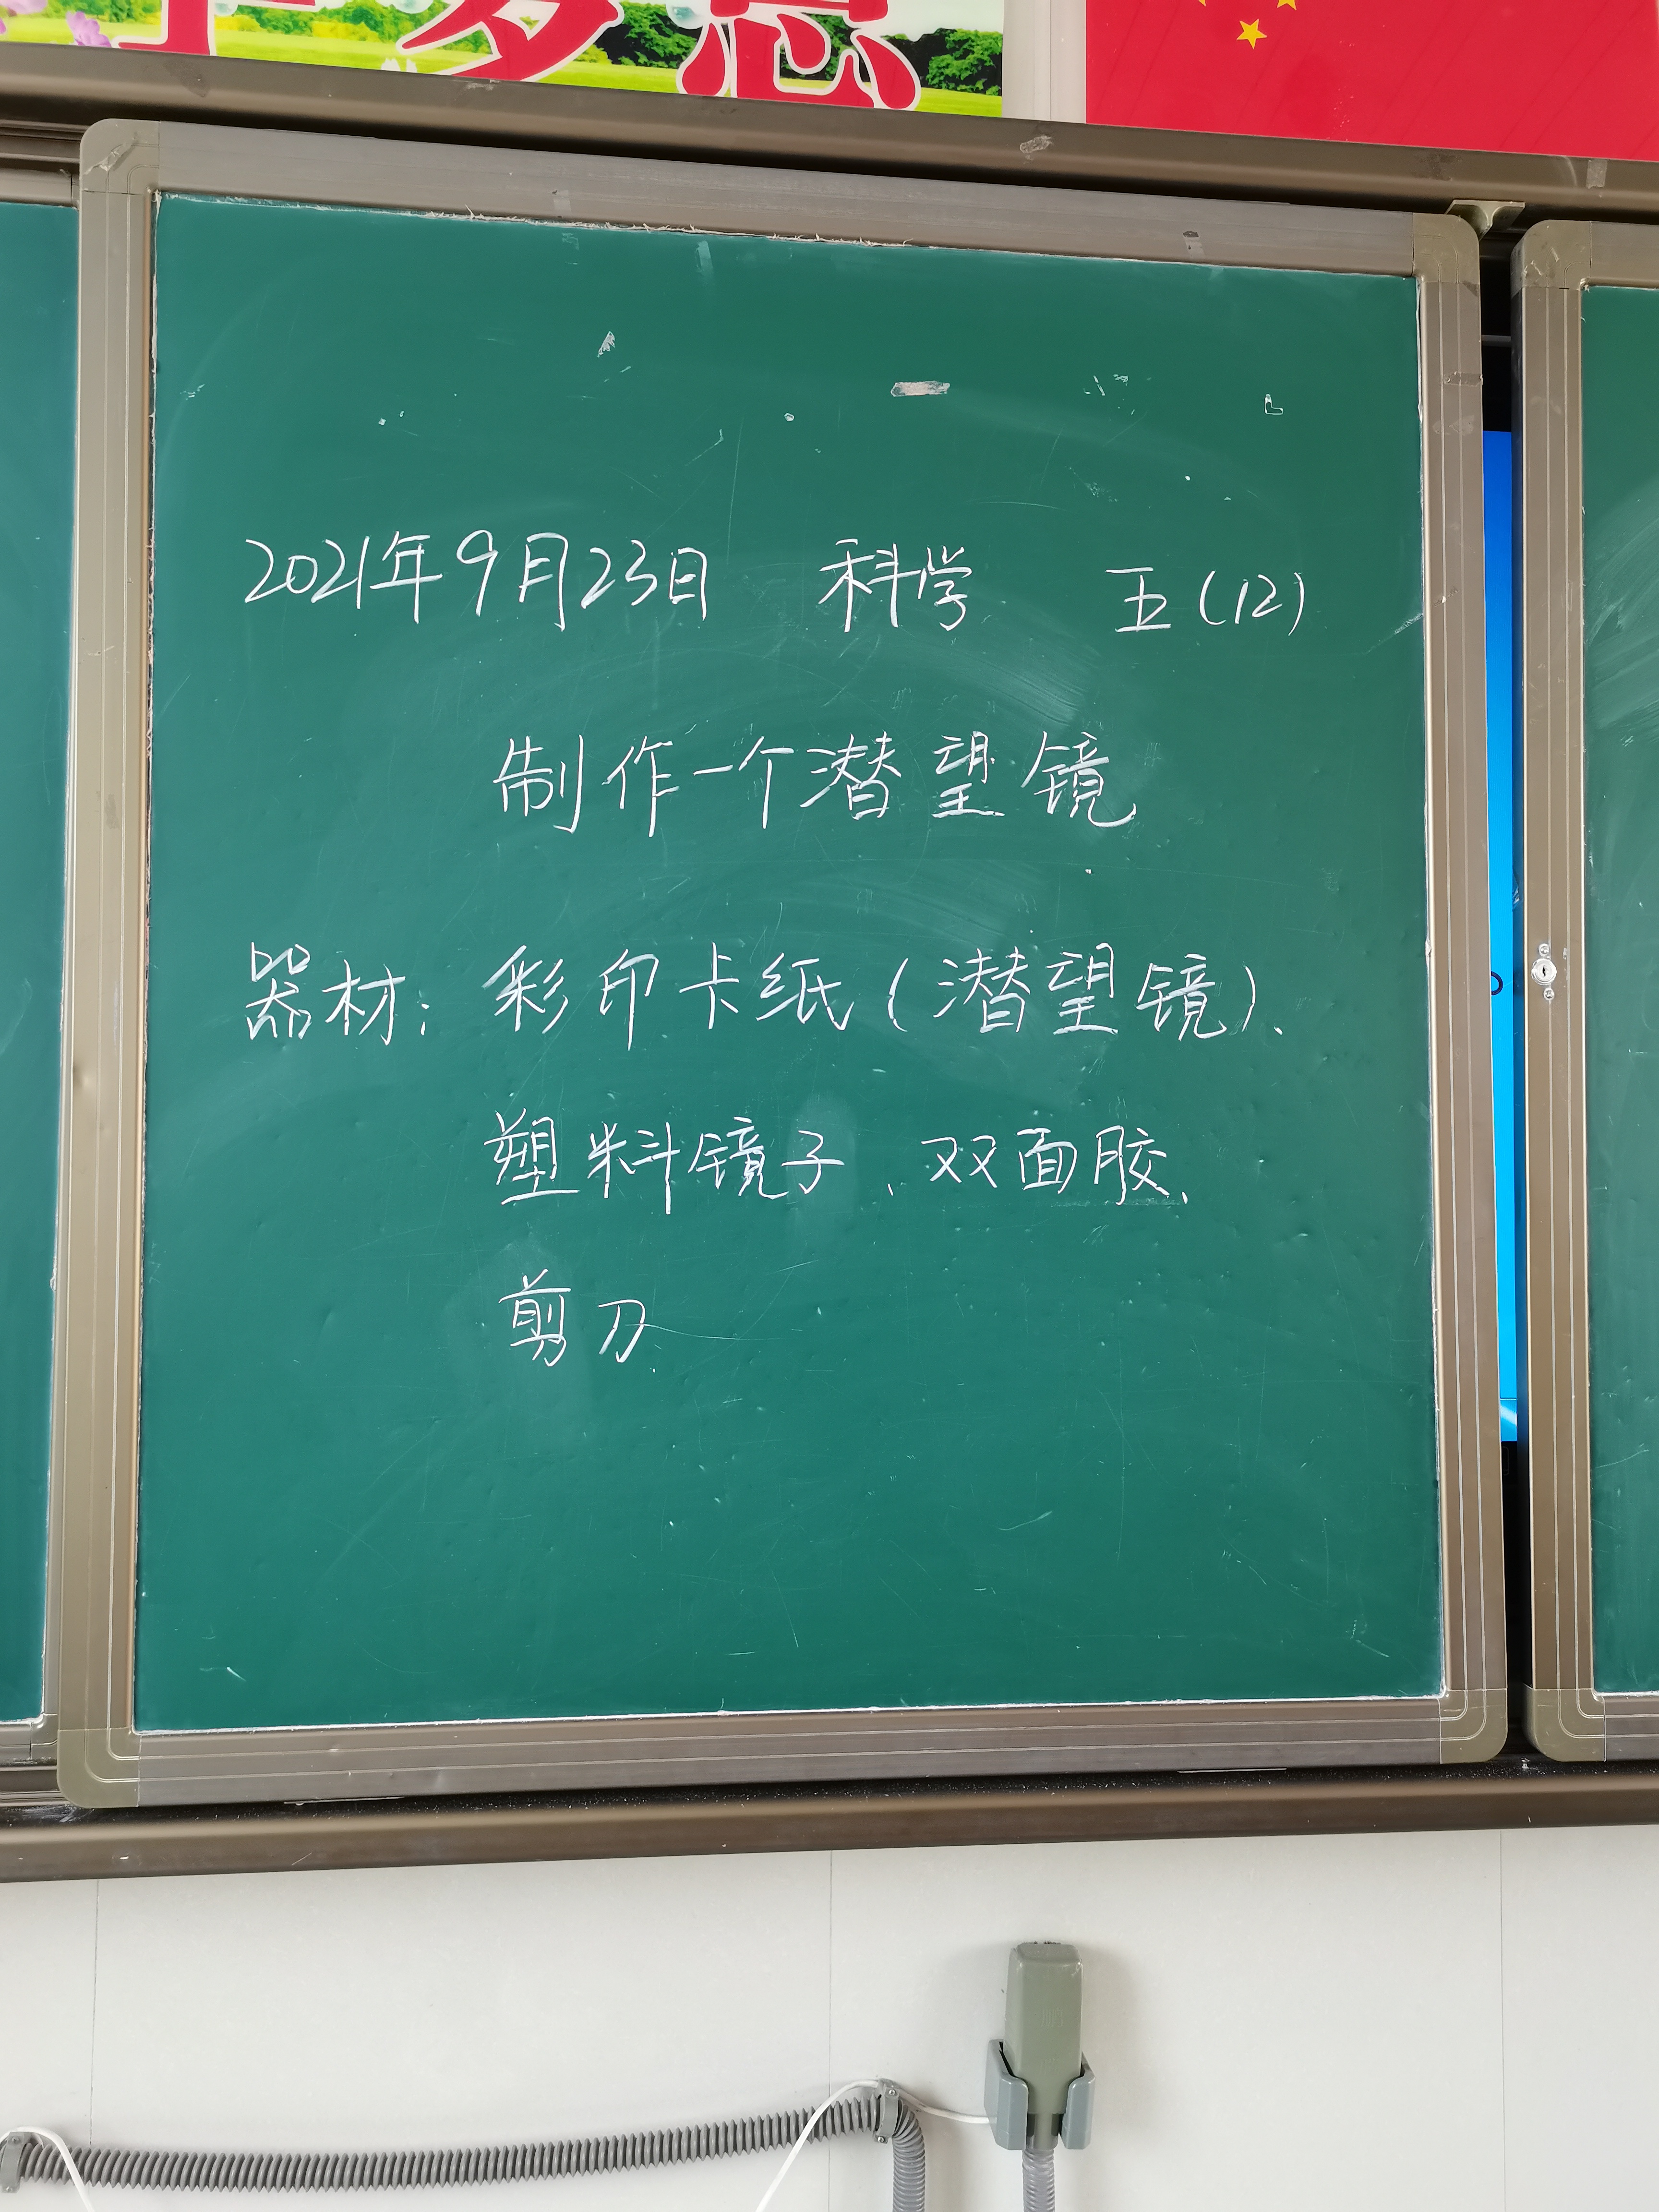 2021年9月23日 科学 五(12)
制作一个潜望镜
器材：彩印卡纸(潜望镜)、
塑料镜子、双面胶、
剪刀